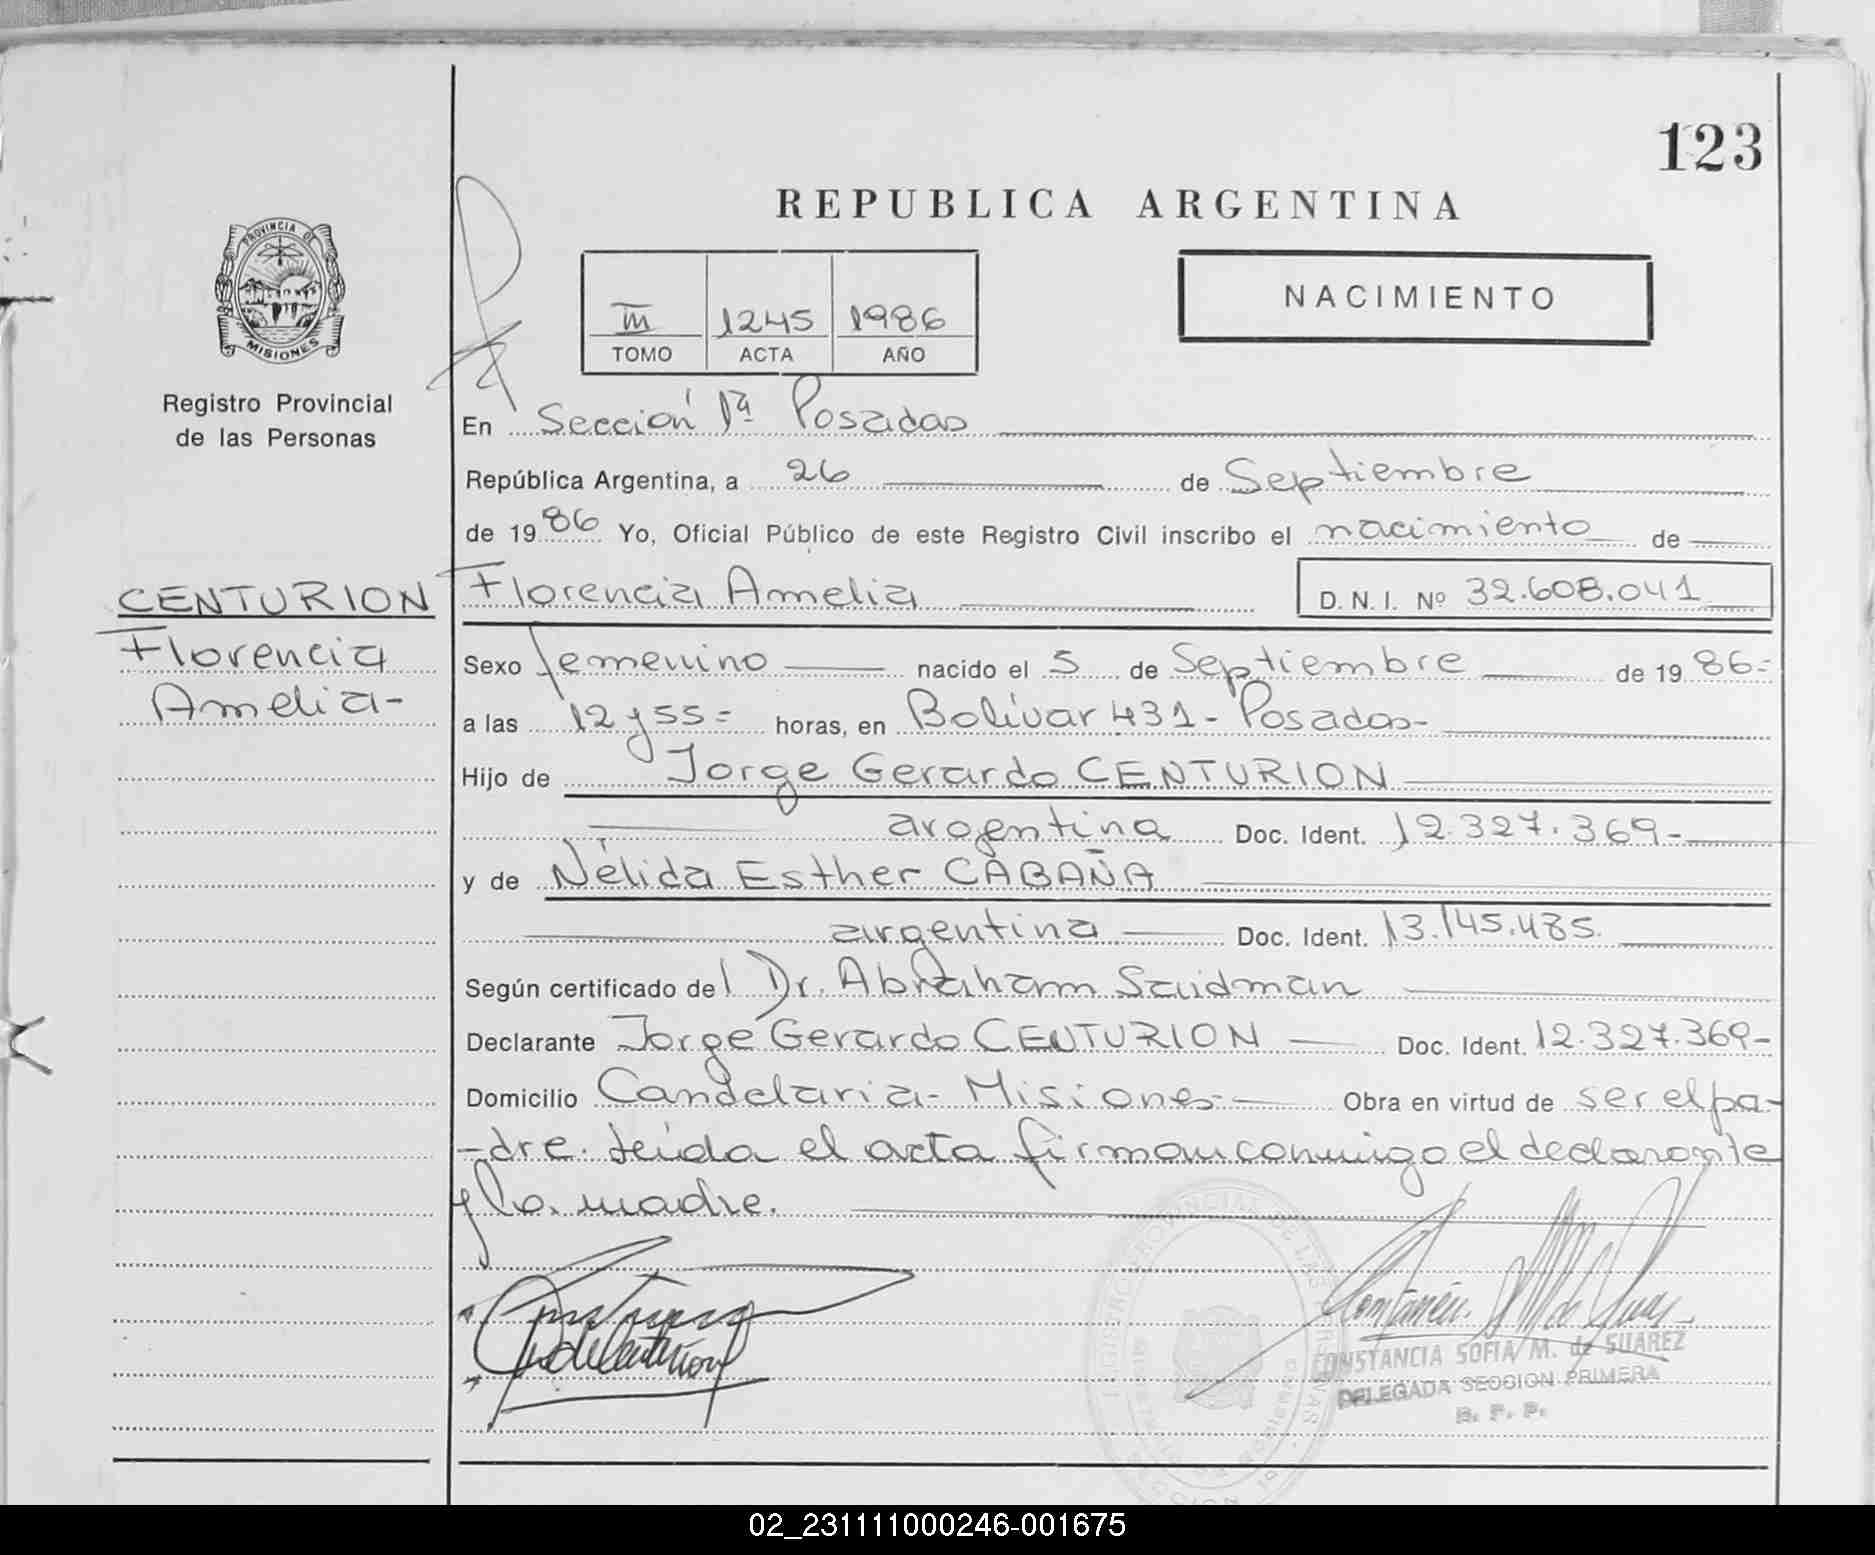 123
REPUBLICA ARGENTINA
PROVINCIA DE
MISIONES
Registro Provincial
de las Personas
NACIMIENTO
III 1245 1986
TOMO ACTA AÑO
En Sección 1ª Posadas
República Argentina, a 26 de Septiembre
de 1986 Yo, Oficial Público de este Registro Civil inscribo el nacimiento de
CENTURION
Florencia
Amelia-
Florencia Amelia D. N. I. Nº 32.608.041
Sexo femenino nacido el 5 de Septiembre de 1986=
a las 12 y 55= horas, en Bolívar 431- Posadas-
Hijo de Jorge Gerardo CENTURION
argentina Doc. Ident. 12.327.369-
y de Nélida Esther CABAÑA
argentina Doc. Ident. 13.145.485.
Según certificado del Dr. Abraham Saidman
Declarante Jorge Gerardo CENTURION Doc. Ident. 12.327.369-
Domicilio Candelaria- Misiones- Obra en virtud de ser el pa-
-dre. Leída el acta firman conmigo el declarante
y la madre.
CONSTANCIA SOFIA M. de SUAREZ
DELEGADA SECCION PRIMERA
R. P. P.
02_231111000246-001675